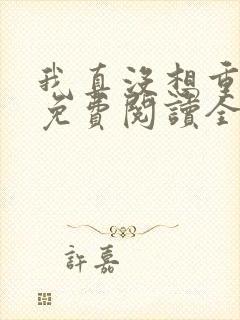 我真沒想重
免費閱讀全
許嘉